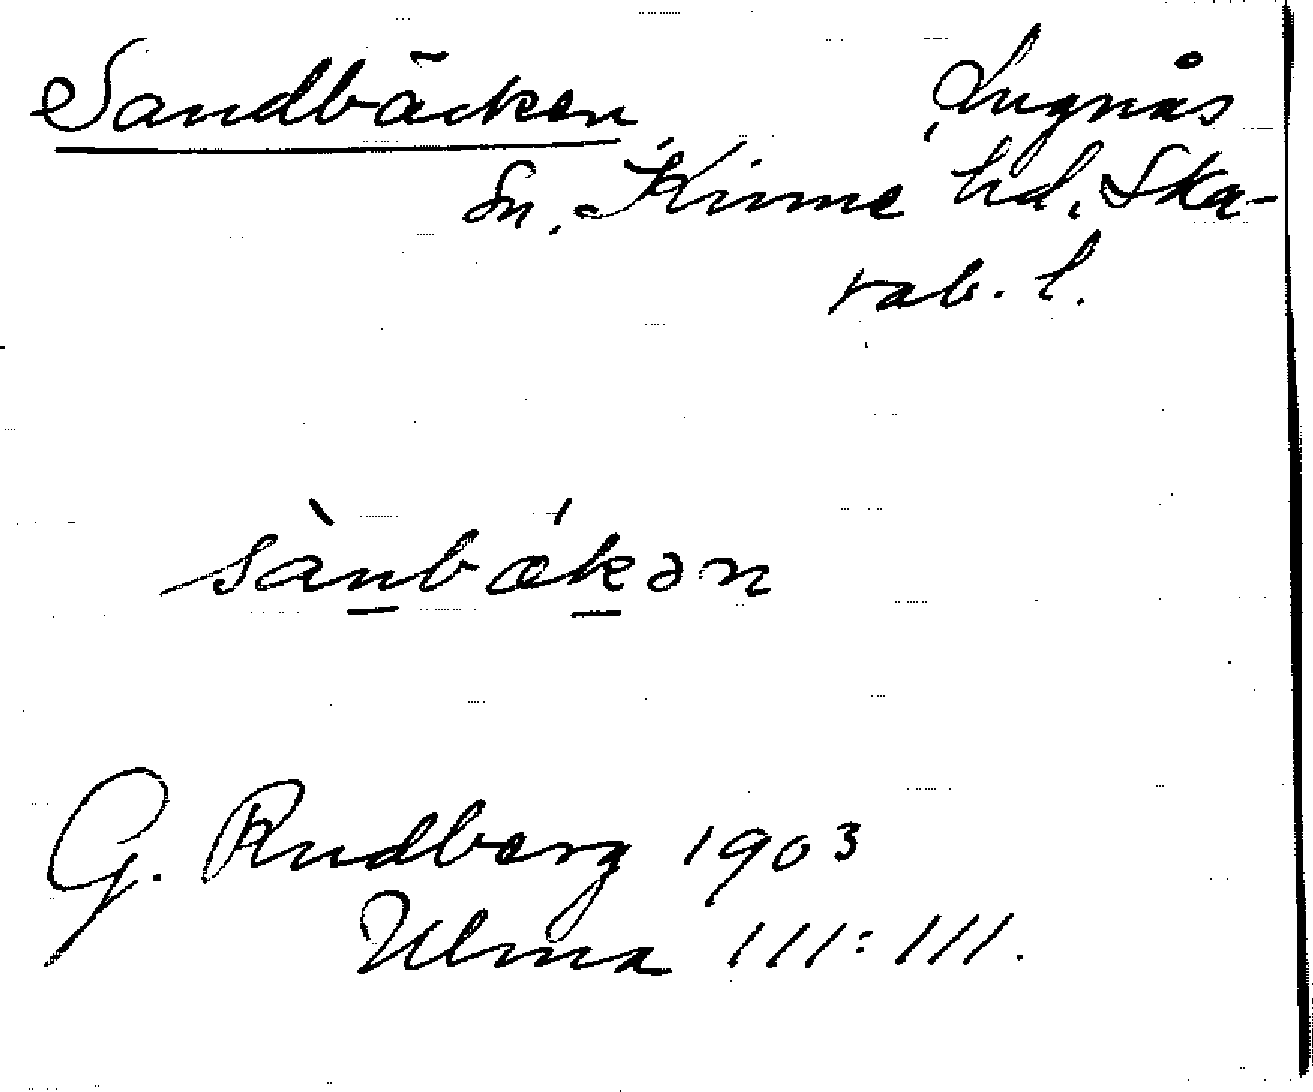 Sandbäcken Lugnås
Sn. Kinne hd. Ska-
rab. l.
sànbǽkən
G. Rudberg 1903
Ulma 111:111.